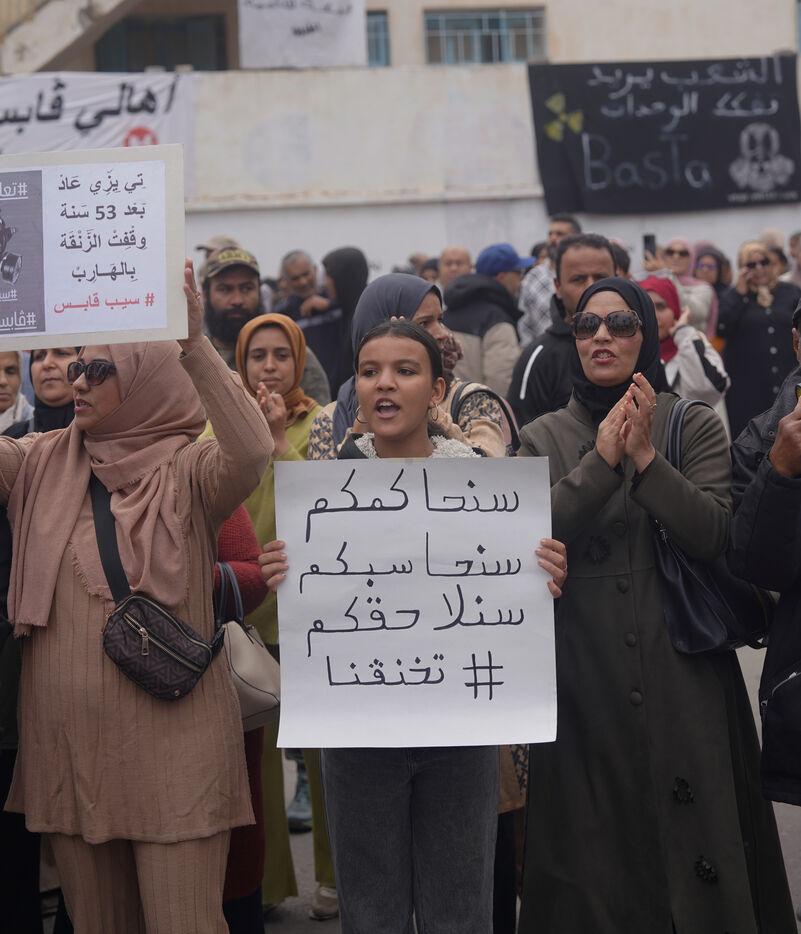 أهالي ڨابس
الشعب يريد
تفكك الوحدات
BaSTa
#تعا
تِي يزِّي عَادْ
بَعْد 53 سَنة
وقْفِتْ الزَّنْقَة
بِالهَارِبْ
# سيب ڨابس
سنحاكمكم
سنحاسبكم
سنلاحقكم
# تخنقنا